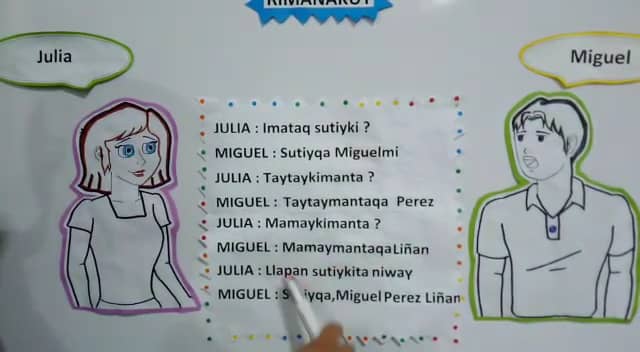 RIMANAKUY
Julia
Miguel
JULIA : Imataq sutiyki ?
MIGUEL : Sutiyqa Miguelmi
JULIA : Taytaykimanta ?
MIGUEL : Taytaymantaqa Perez
JULIA : Mamaykimanta ?
MIGUEL : MamaymantaqaLiñan
JULIA : Llapan sutiykita niway
MIGUEL : Miguel Perez Liñan